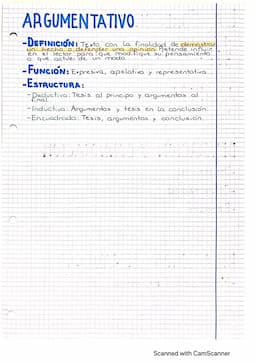 ARGUMENTATIVO
-DEFINICIÓN: Texto con la finalidad de demostrar
un hecho o defender una opinión. Pretende influir
en el lector para que modifique su pensamiento
o que actúe de un modo.
-FUNCIÓN: Expresiva, apelativa y representativa.
-ESTRUCTURA:
-Deductiva: Tesis al principio y argumentos al
final.
-Inductiva: Argumentos y tesis en la conclusión.
-Encuadrada: Tesis, argumentos y conclusión.
Scanned with CamScanner